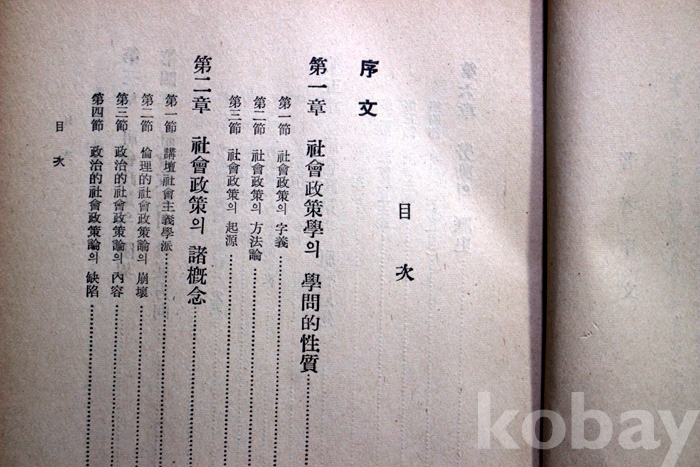 目次
序文
第一章 社會政策學의 學問的性質
第一節 社會政策의 字義
第二節 社會政策의 方法論
第三節 社會政策의 起源
第二章 社會政策의 諸概念
第一節 講壇社會主義學派
第二節 倫理的社會政策論의 崩壞
第三節 政治的社會政策論의 內容
第四節 政治的社會政策論의 缺陷
目次
kobay